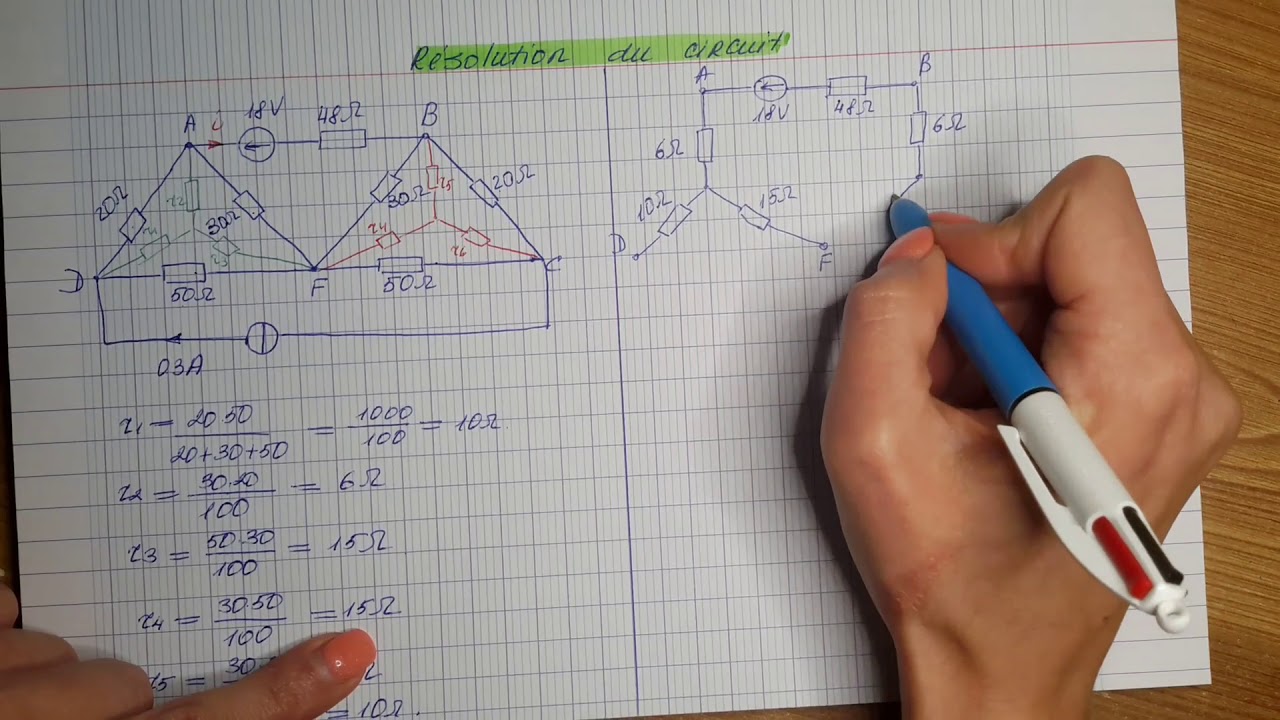 Résolution du circuit
A
i
18V
48Ω
B
20Ω
r2
30Ω
30Ω
r5
20Ω
r1
r3
r4
r6
D
50Ω
F
50Ω
C
0.3A
r1 = 20.50 / 20+30+50 = 1000 / 100 = 10Ω.
r2 = 30.20 / 100 = 6Ω
r3 = 50.30 / 100 = 15Ω
r4 = 30.50 / 100 = 15Ω
r5 = 30. Ω
= 10Ω.
A
18V
48Ω
B
6Ω
6Ω
10Ω
15Ω
D
F